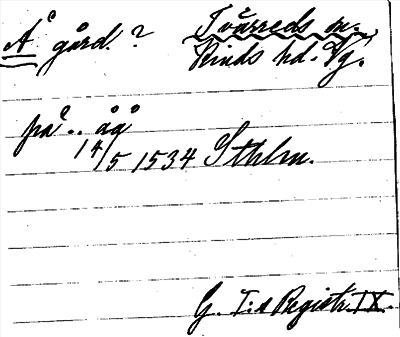 Å gård? Tvärreds sn.
Kinds hd. Vg.
på .. åå
14/5 1534 Sthlm.
G. I:s Registr. IX.